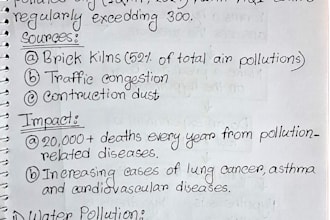 regularly excedding 300.
Sources:
ⓐ Brick Kilns (52% of total air pollutions)
ⓑ Traffic congestion
ⓒ Contruction dust
Impact:
ⓐ 20,000+ deaths every year from pollution-
related diseases.
ⓑ Increasing cases of lung cancer, asthma
and cardiovascular diseases.
Water Pollution: